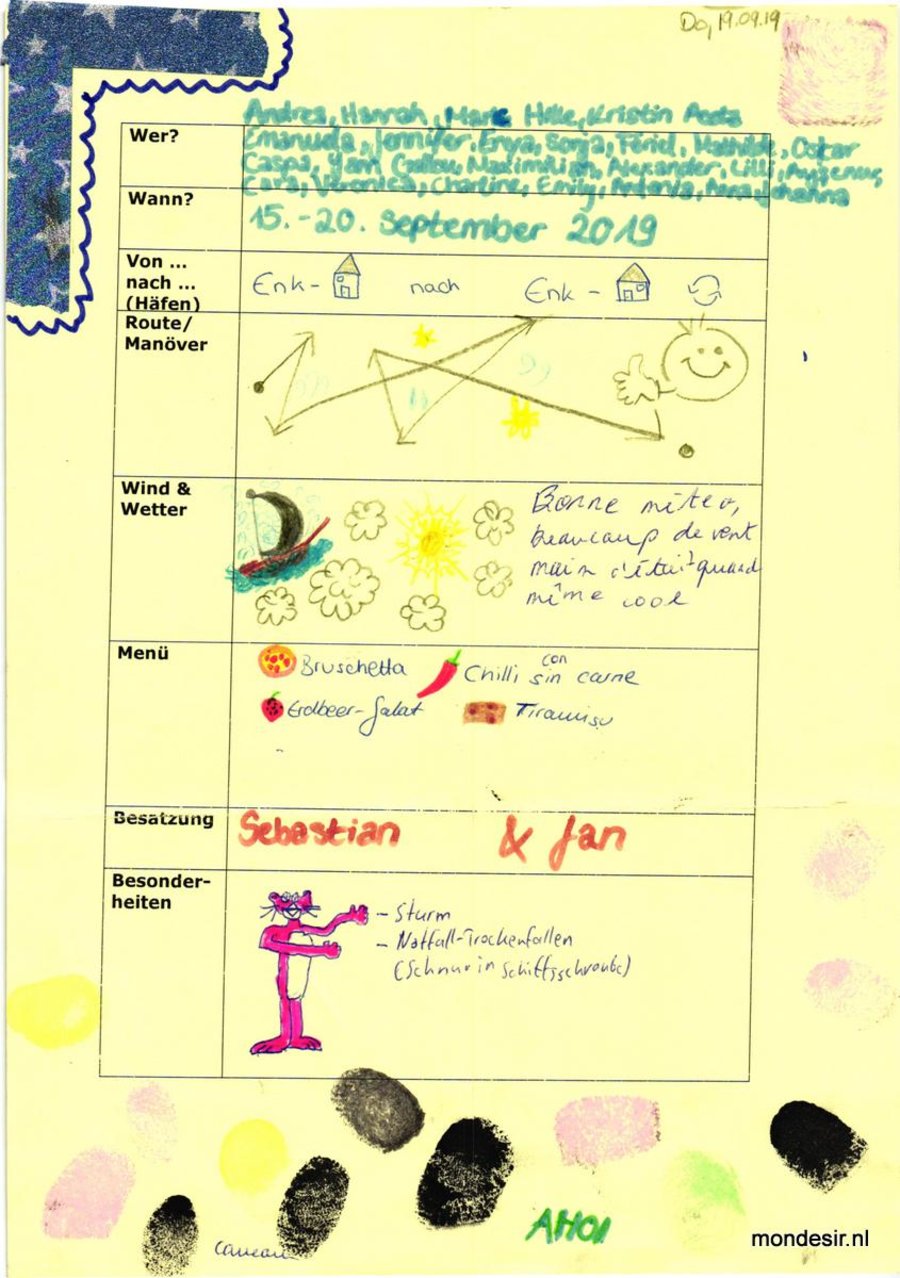 Do, 19.09.19
Wer?
Andrea, Hannah, Marc Hille, Kristin
Emanuela, Jennifer, Enya, Sonja, Feriel, Mathilde, Oskar
Yann Maximilian, Alexander, Lilli,
Veronica, Charline, Emily, Johanna
Wann?
15.-20. September 2019
Von ...
nach ...
(Häfen)
Enk- nach Enk -
Route/
Manöver
Wind &
Wetter
Bonne météo,
beaucoup de vent
mais c'était quand
même cool
Menü
Bruschetta
Chilli con
sin carne
Erdbeer-Salat
Tiramisu
Besatzung
Sebastian & Jan
Besonder-
heiten
- Sturm
- Notfall-Trockenfallen
(Schnur in Schiffsschraube)
AHOI
mondesir.nl